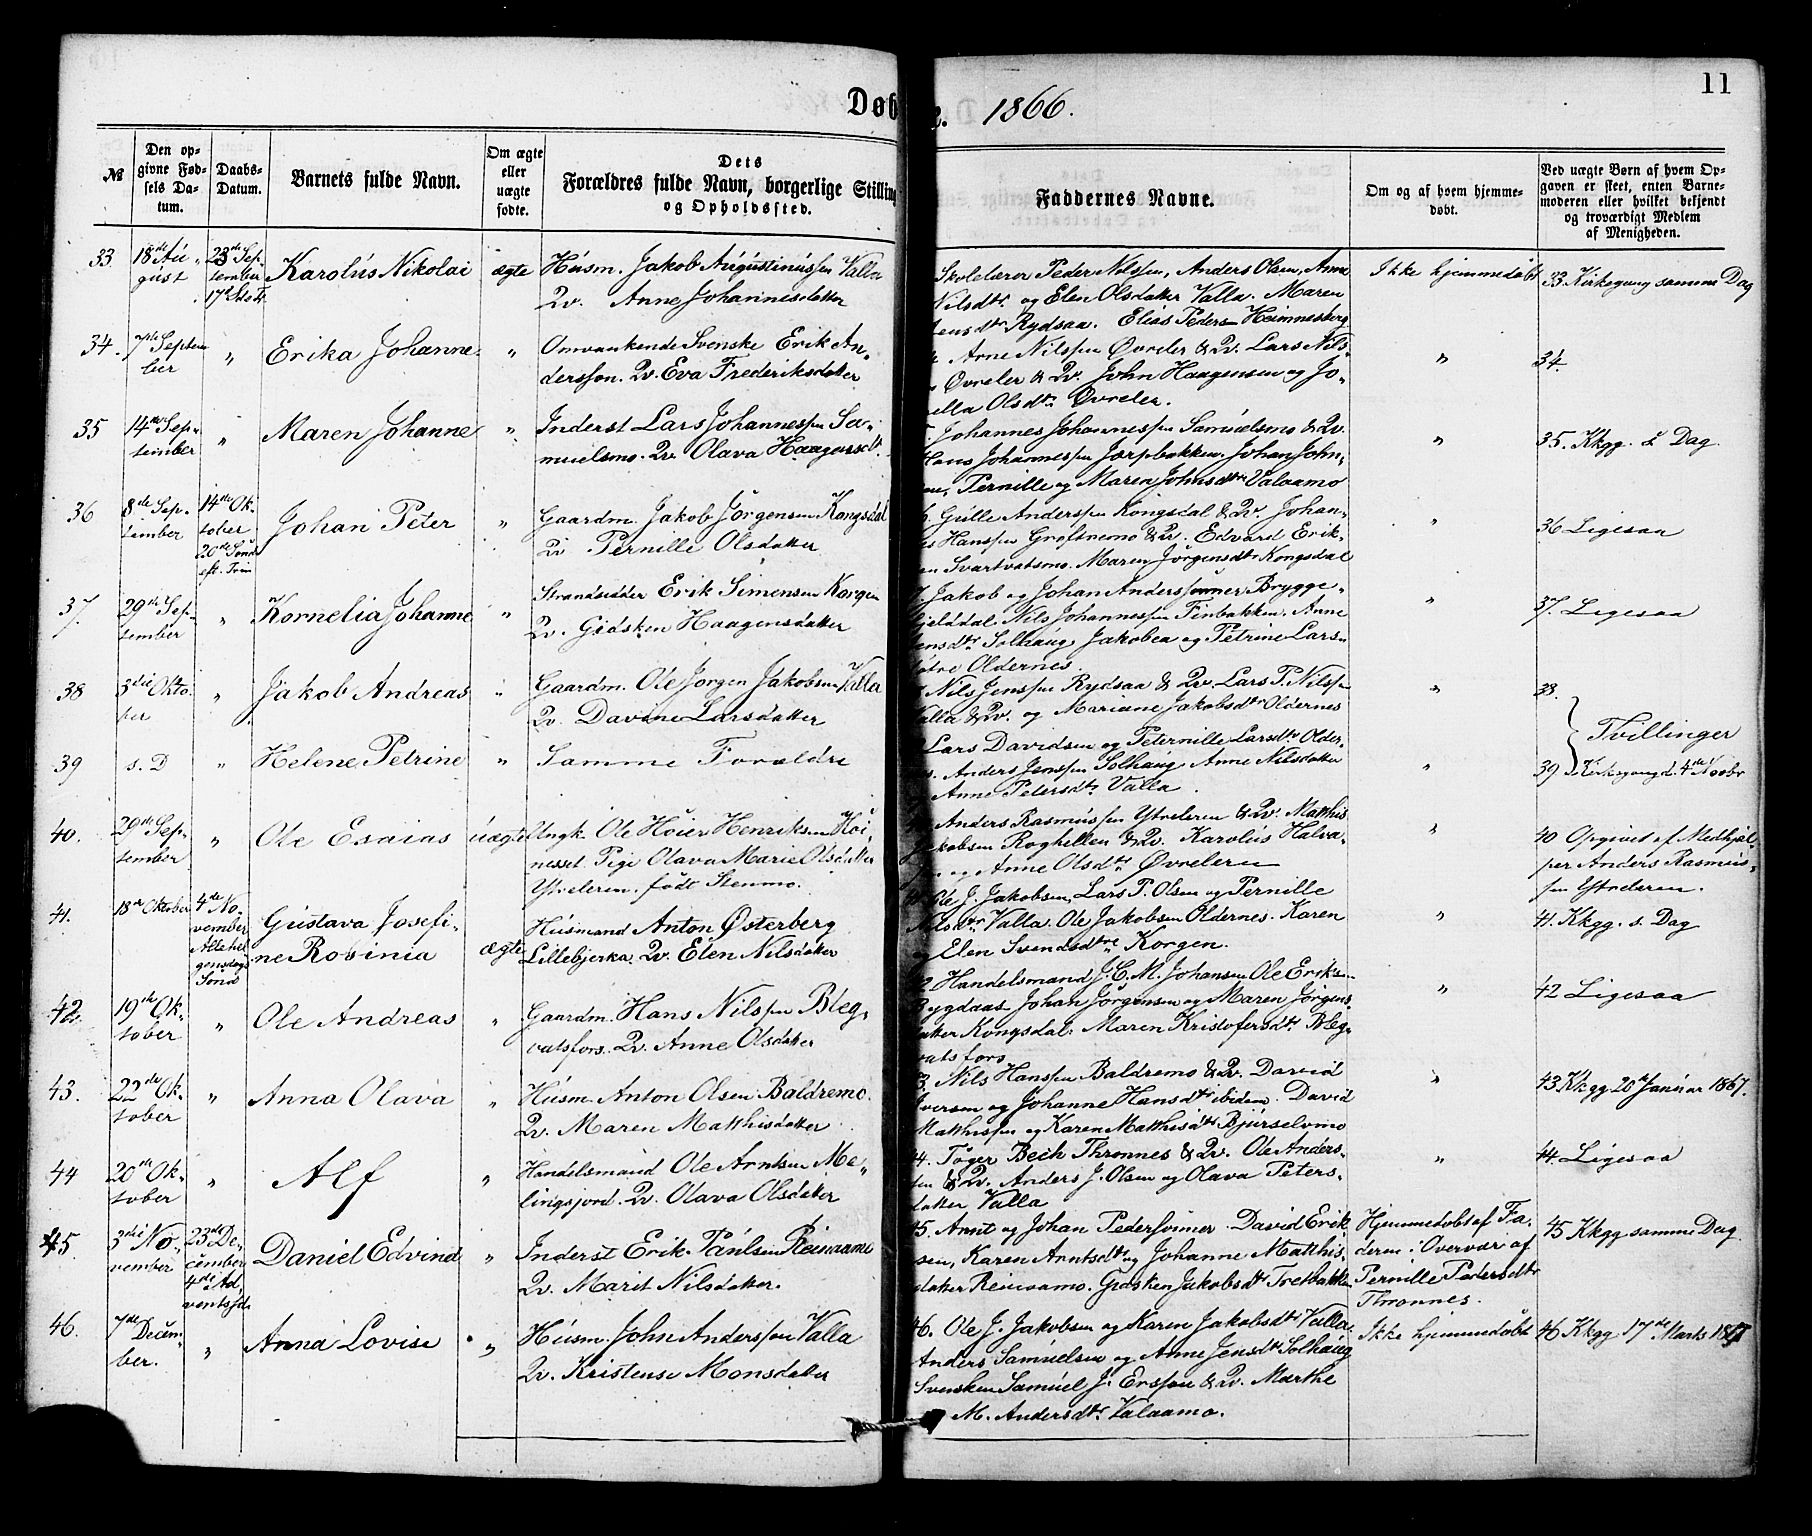 Døb
e. 1866.
11
№
Den opgivne Fødsels Datum.
Daabs-Datum.
Barnets fulde Navn.
Om ægte eller uægte fødte.
Dets Forældres fulde Navn, borgerlige Stilling og Opholdssted.
Faddernes Navne.
Om og af hvem hjemmedøbt.
Ved uægte Børn af hvem Opgaven er skeet, enten Barnemoderen eller hvilket bekjendt og troværdigt Medlem af Menigheden.
33. 18de August 23de September Karolús Nikolai ægte Húsm. Jakob Aúgústinússen Valla
Qv. Anne Johannesdatter
Skolelærer Peder Nilssen, Anders Olsen, Anna
Nilsdtr og Elen Olsdatter Valla. Maren
Jensdtr Rydsaa. Elias Peders. Hemnesberg
Ikke hjemmedøbt
33 Kirkegang samme Dag
34. 7de September " Erika Johanne " Omvankende Svenske Erik An-
dersson. Qv. Eva Frederiksdatter
Arne Nilssen Øvreler & Qv. Lars Nils-
Øvreler & Qv. John Haagensen og Jo-
Olsdtr Øvreler.
"
34.
35 14de September " Maren Johanne " Inderst Lars Johannessen Sa-
múelsmo. Qv. Olava Haagensdt.
Johannes Johannessen Samúelsmo & Qv.
Hans Johannessen Jærpbakken. Johan John-
Pernille og Maren Johnsdtre Valaamo
"
35. Kkgg. s Dag.
36 8de September 14de Oktober 20de Sønd. eft. Trin Johan Peter " Gaardm. Jakob Jørgensen Kongsdal
Qv Pernille Olsdatter
Gúlle Anderssen Kongsdal & Qv. Johan-
Hanssen Grøftremo & Qv. Edvard Erik-
Svartvatsmo. Maren Jørgensdtr Kongsdal
"
36 Ligesaa
37. 29de September " Kornelia Johanne " Strandsidder Erik Simensen Korgen
Qv. Gidsken Haagensdatter
Jakob og Johan Anderssønner Brygge-
fjelddal. Nils Johannessen Finbakken. Anne
Jensdtr Solhaug, Jakobea og Petrine Lars-
døtre Oldernes.
"
37. Ligesaa
38 3die Oktober " Jakob Andreas " Gaardm. Ole Jørgen Jakobsen Valla
Qv. Davine Larsdatter
Nils Jenssen Rydsaa & Qv. Lars P. Nilssen
Valla & Qv. og Mariane Jakobsdtr Oldernes
"
38.
Tvillinger
39 s. D " Helene Petrine " Samme Forældre
Lars Davidsen og Peternille Larsdtr Older-
Anders Jenssen Solhaug, Anne Nilsdatter
Anne Petersdtr Valla.
"
39 Kirkegang d. 4de Novbr
40. 29de September " Ole Esaias úægte Úngk. Ole Høier Henriksen Høi-
nesset. Pige Olava Marie Olsdatter
Ytreleren. født Stenmo.
Anders Rasmússen Ytreleren & Qv. Matthis
Jakobsen Roghellen & Qv. Karolús Halva-
og Anne Olsdtr Øvreleren
"
40 Opgivet af Medhjæl-
per Anders Rasmús-
sen Ytreleren.
41. 18de Oktober 4de November Allehelgensdags Sønd Gústava Josefi-
ne Rosinia ægte Húsmand Anton Østerberg
Lillebjerka. Qv. Elen Nilsdatter
Ole J. Jakobsen, Lars P. Olsen og Pernille
Nilsdtr Valla. Ole Jakobsen Oldernes. Karen
og Elen Svendsdtre Korgen.
"
41. Kkgg. s. Dag
42. 19de Oktober " Ole Andreas " Gaardm. Hans Nilssen Bleg-
vatsfors. Qv. Anne Olsdatter
Handelsmand J. C. M. Johansen. Ole Eriksen
Bygdaas. Johan Jørgensen og Maren Jørgens-
datter Kongsdal. Maren Kristofersdtr Bleg-
vatsfors
"
42 Ligesaa
43. 22de Oktober " Anna Olava " Húsm. Anton Olsen Baldremo.
Qv. Maren Matthisdatter
Nils Hanssen Baldremo & Qv. David
Iversen og Johanne Hansdtr ibidem. David
Matthissen og Karen Matthisdtr Bjúrselvmo
"
43. Kkgg 20de Janúar 1867.
44 20de Oktober " Alf " Handelsmand Ole Arntsen Me-
lingsjord. Qv. Olava Olsdatter
44. Tøger Bech Thronnes & Qv. Ole Anders-
sen & Qv. Anders J. Olsen og Olava Peters-
datter Valla
"
44. Ligesaa
45. 3die November 23de December 4de Adventssd. Daniel Edvind " Inderst Erik Paúlsen Reinaamo
Qv. Marit Nilsdatter.
45. Arnt og Johan Pedersønner. David Erik-
sen, Karen Arntsdtr og Johanne Matthis-
datter Reinaamo. Gidsken Jakobsdtr Tretbakken
Hjemmedøbt af Fa-
deren i Overvær af
Pernille Pedersdtr
Thronnes.
45 Kkgg samme Dag
46. 7de December. " Anna Lovise " Húsm. John Anderssen Valla
Qv. Kristense Monsdatter
46. Ole J. Jakobsen og Karen Jakobsdtr Valla.
Anders Samúelsen og Anne Jensdtr Solhaúg
Svensken Samúel J. Ersson & Qv. Marthe
M. Andersdtr Valaamo.
Ikke hjemmedøbt
46 Kkgg 17de Marts 1867